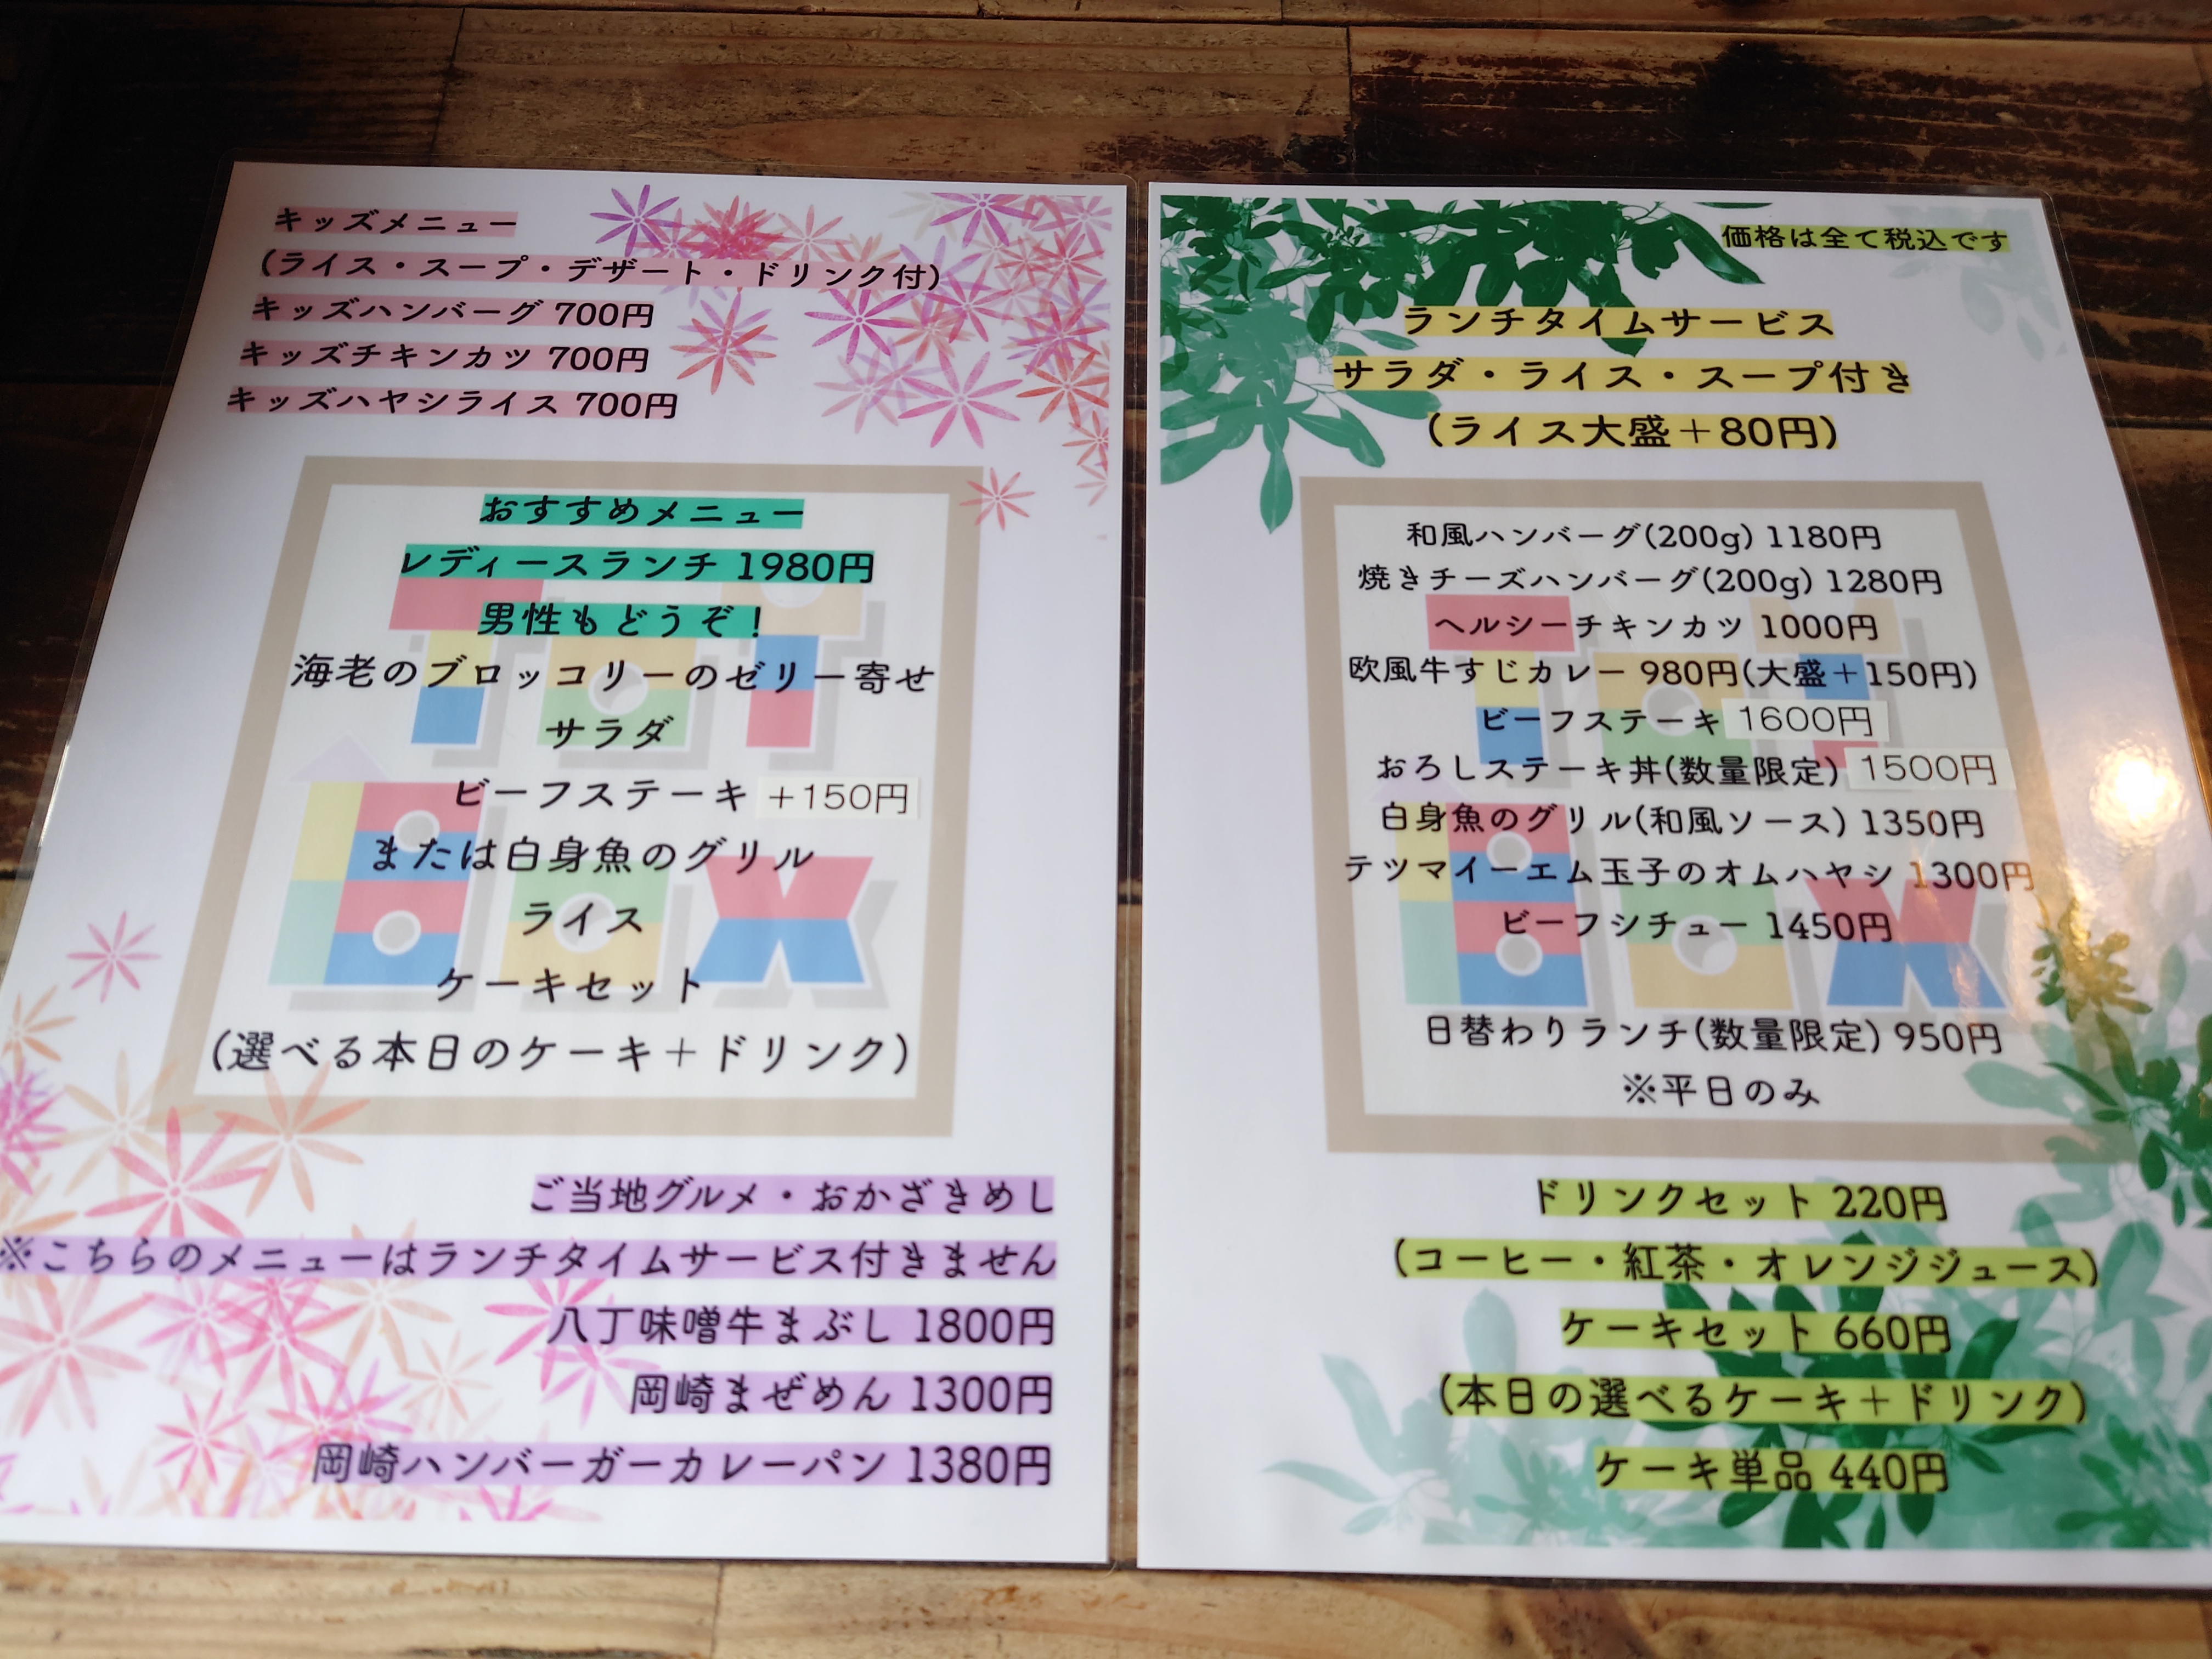 キッズメニュー
(ライス・スープ・デザート・ドリンク付)
キッズハンバーグ 700円
キッズチキンカツ 700円
キッズハヤシライス 700円
おすすめメニュー
レディースランチ 1980円
男性もどうぞ！
海老のブロッコリーのゼリー寄せ
サラダ
ビーフステーキ +150円
または白身魚のグリル
ライス
ケーキセット
(選べる本日のケーキ＋ドリンク)
ご当地グルメ・おかざきめし
※こちらのメニューはランチタイムサービス付きません
八丁味噌牛まぶし 1800円
岡崎まぜめん 1300円
岡崎ハンバーガーカレーパン 1380円
TOY
BOX
価格は全て税込です
ランチタイムサービス
サラダ・ライス・スープ付き
(ライス大盛＋80円)
和風ハンバーグ(200g) 1180円
焼きチーズハンバーグ(200g) 1280円
ヘルシーチキンカツ 1000円
欧風牛すじカレー 980円(大盛＋150円)
ビーフステーキ 1600円
おろしステーキ丼(数量限定) 1500円
白身魚のグリル(和風ソース) 1350円
テツマイーエム玉子のオムハヤシ 1300円
ビーフシチュー 1450円
日替わりランチ(数量限定) 950円
※平日のみ
ドリンクセット 220円
(コーヒー・紅茶・オレンジジュース)
ケーキセット 660円
(本日の選べるケーキ＋ドリンク)
ケーキ単品 440円
TOY
BOX